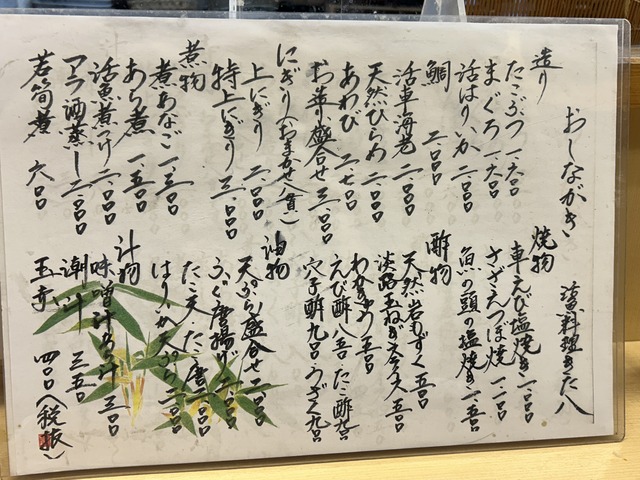 おしながき
活料理きた八
造り
たこぶつ 一、六〇〇
まぐろ 一、六〇〇
活はりいか 二、〇〇〇
鯛 二、〇〇〇
活車海老 二、〇〇〇
天然ひらめ 二、〇〇〇
あわび 二、七〇〇
お造り盛合せ 三、〇〇〇
にぎり(おまかせ八貫)
上にぎり 二、〇〇〇
特上にぎり 三、〇〇〇
煮物
煮あなご 一、三〇〇
あら煮 一、五〇〇
活魚煮つけ 二、〇〇〇
アラ酒蒸し 二、〇〇〇
若筍煮 六〇〇
焼物
車えび塩焼き 一、〇〇〇
さざえつぼ焼
魚の頭の塩焼き 一、五〇〇
酢物
天然岩もずく 五〇〇
淡路玉ねぎスライス 五〇〇
わかめ 五〇〇
えび酢 八五〇 たこ酢
穴子酢 九〇〇 うざく 九〇〇
油物
天ぷら盛合せ 二、〇〇〇
ふぐ唐揚げ
たこ天・たこ唐
はりいか天ぷら
汁物
味噌汁 赤汁 三〇〇
潮汁 三五〇
玉吸 四〇〇
(税抜)